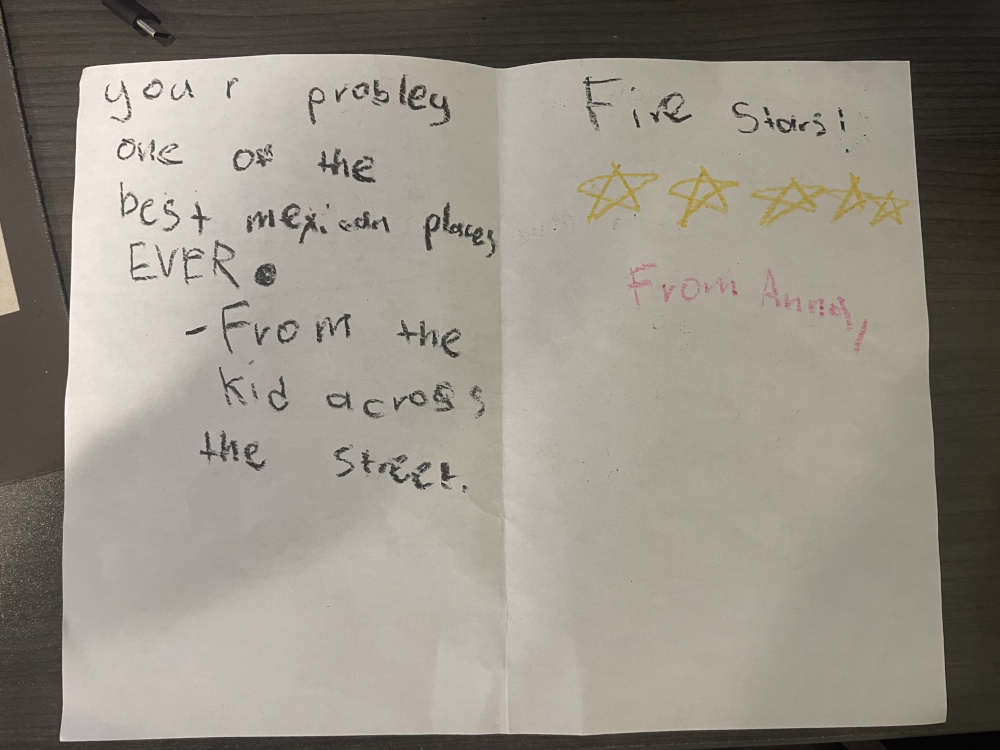 your probley
one of the
best mexican places
EVER.
- From the
kid across
the street.
Five Stars!
From Anna,